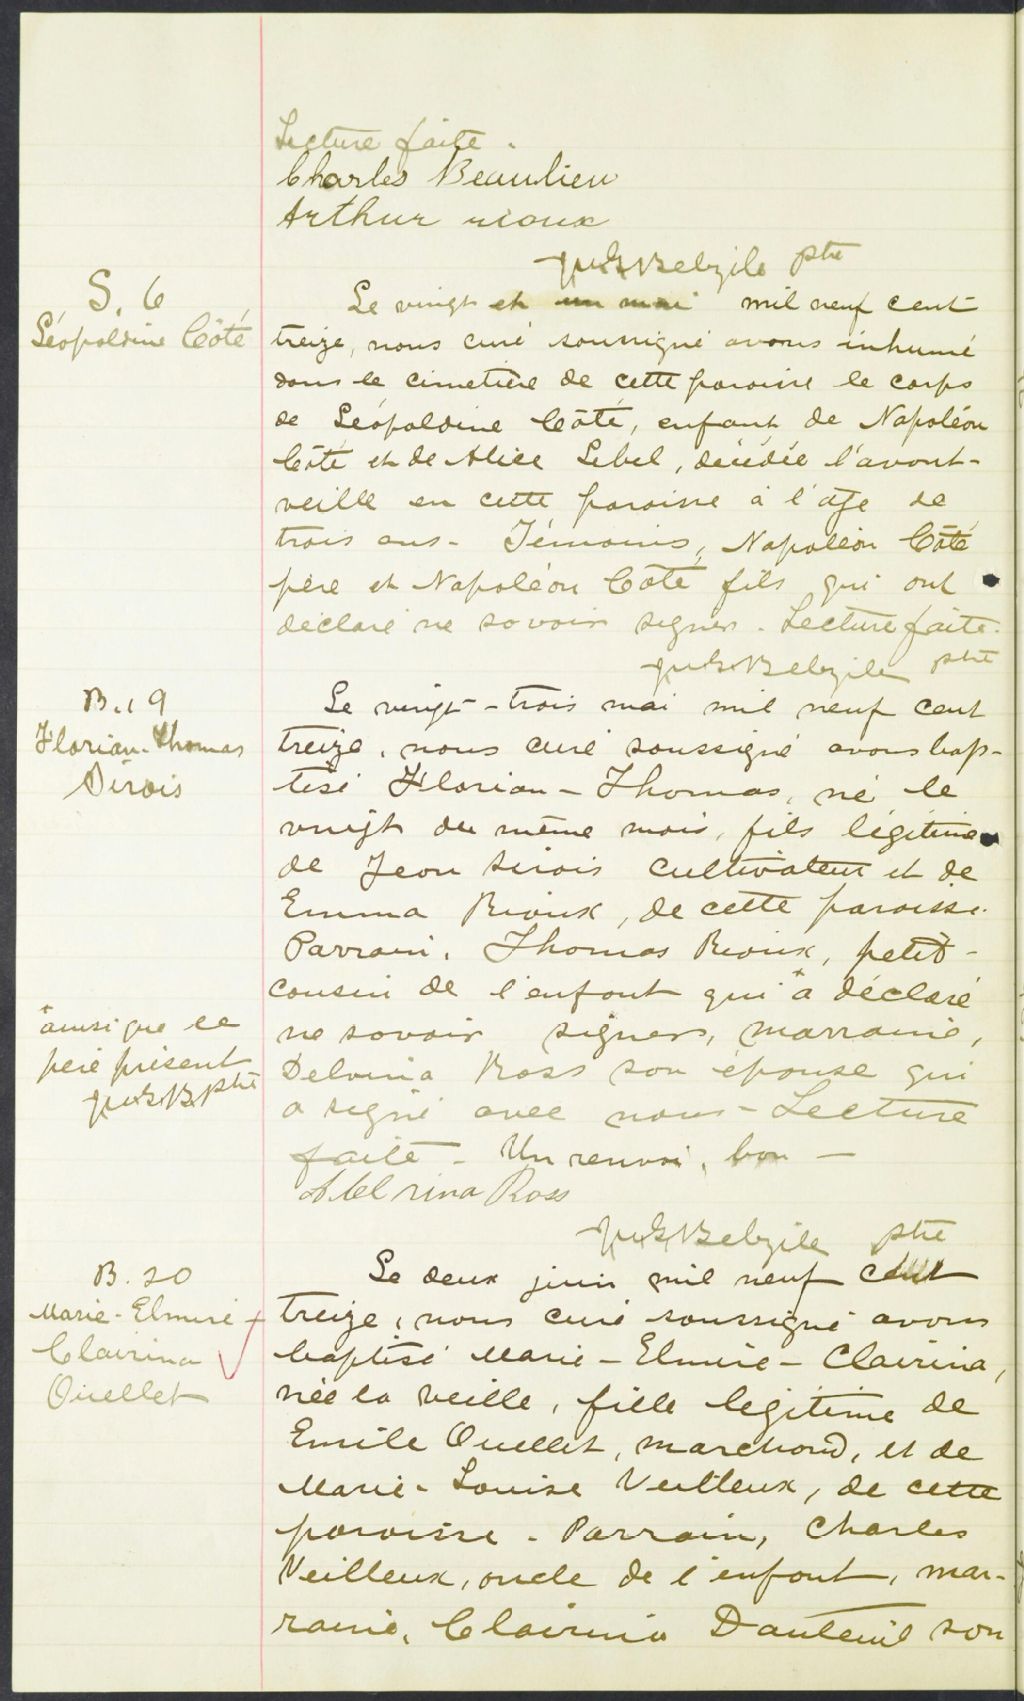 Lecture faite.
Charles Beaulieu
Arthur rioux
Belzile ptre
S. 6
Léopoldine Côté
Le vingt et un mai mil neuf cent
treize, nous curé soussigné avons inhumé
dans le cimetière de cette paroisse le corps
de Léopoldine Côté, enfant de Napoléon
Côté et de Alice Lebel, décédée l'avant-
veille en cette paroisse à l'âge de
trois ans - Témoins, Napoléon Côté
père et Napoléon Côté fils qui ont
déclaré ne savoir signer. Lecture faite.
Belzile ptre
B.19
Florian-Thomas
Sirois
Le vingt-trois mai mil neuf cent
treize, nous curé soussigné avons bap-
tisé Florian-Thomas, né le
vingt du même mois, fils légitime
de Jean Sirois cultivateur et de
Emma Rioux, de cette paroisse.
Parrain, Thomas Rioux, petit-
cousin de l'enfant qui + a déclaré
ne savoir signer, marraine,
Delvina Ross son épouse qui
a signé avec nous - Lecture
faite - Un renvoi, bon -
+ ainsi que le
père présent
ptre
Ross
Belzile ptre
B. 20
Marie-Elmire-
Clairina
Ouellet
Le deux juin mil neuf cent
treize, nous curé soussigné avons
baptisé Marie-Elmire-Clairina,
née la veille, fille légitime de
Emile Ouellet, marchand, et de
Marie-Louise Veilleux, de cette
paroisse - Parrain, Charles
Veilleux, oncle de l'enfant, mar-
raine, Clairina Dauteuil son